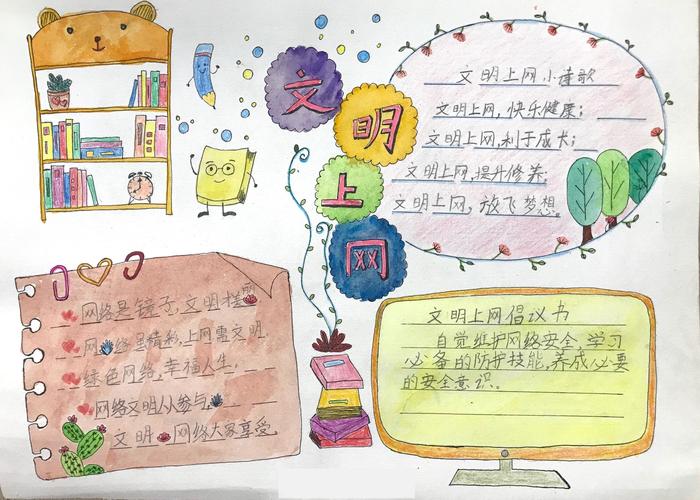 文明上网
文明上网小诗歌
文明上网,快乐健康;
文明上网,利于成长;
文明上网,提升修养;
文明上网,放飞梦想。
网络是镜子,文明样
网络里精彩,上网需文明,
绿色网络,幸福人生,
网络文明人人参与,
文明网络大家享受
文明上网倡议书
自觉维护网络安全,学习
必备的防护技能,养成必要
的安全意识。